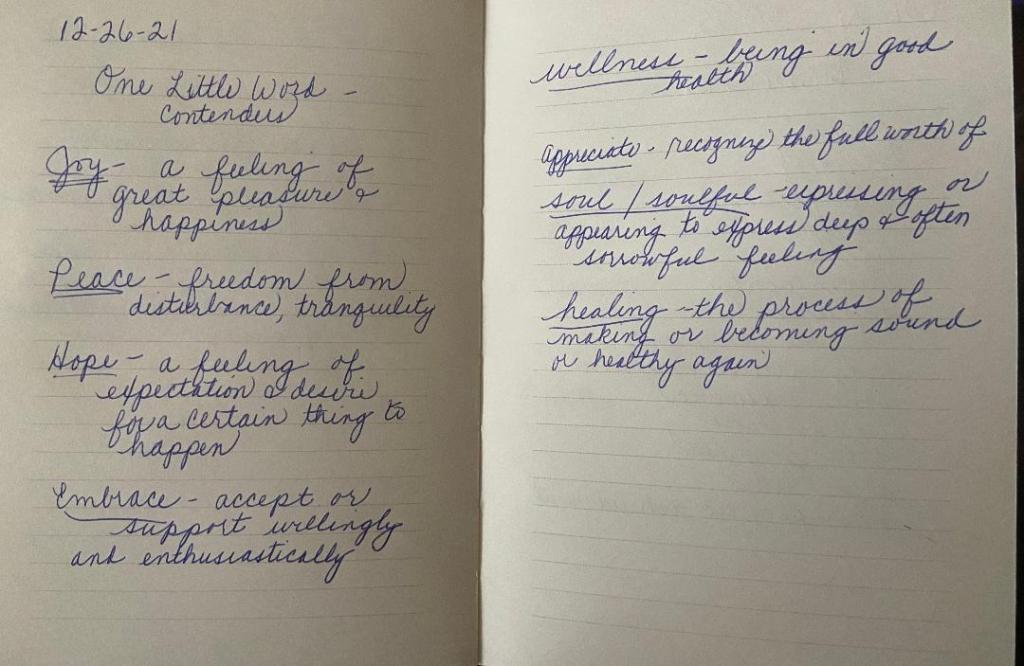 12-26-21
One Little Word -
contenders
Joy - a feeling of
great pleasure &
happiness
Peace - freedom from
disturbance, tranquility
Hope - a feeling of
expectation & desire
for a certain thing to
happen
Embrace - accept or
support willingly
and enthusiastically
wellness - being in good
health
appreciate - recognize the full worth of
soul / soulful - expressing or
appearing to express deep & often
sorrowful feeling
healing - the process of
making or becoming sound
or healthy again